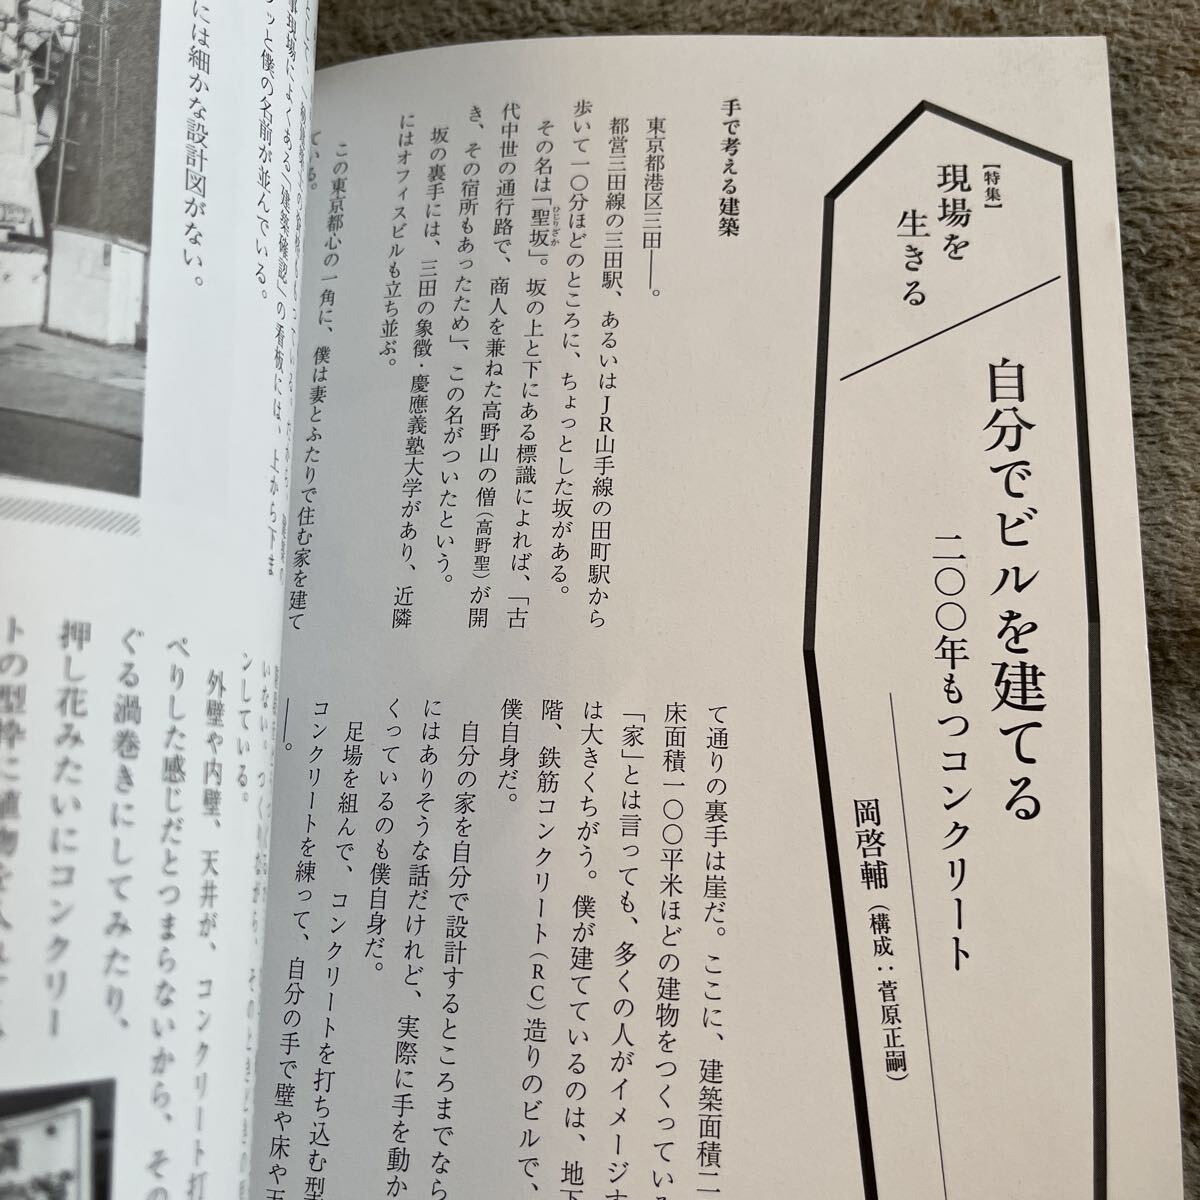 【特集】
現場を
生きる
自分でビルを建てる
二〇〇年もつコンクリート
岡啓輔（構成：菅原正嗣）
手で考える建築
東京都港区三田——。
都営三田線の三田駅、あるいはＪＲ山手線の田町駅から
歩いて一〇分ほどのところに、ちょっとした坂がある。
その名は「聖坂」。坂の上と下にある標識によれば、「古
ひじりざか
代中世の通行路で、商人を兼ねた高野山の僧（高野聖）が開
き、その宿所もあったため」、この名がついたという。
坂の裏手には、三田の象徴・慶應義塾大学があり、近隣
にはオフィスビルも立ち並ぶ。
この東京都心の一角に、僕は妻とふたりで住む家を建て
ている。
て通りの裏手は崖だ。ここに、建築面積二
床面積一〇〇平米ほどの建物をつくってい
「家」とは言っても、多くの人がイメージす
は大きくちがう。僕が建てているのは、地下
階、鉄筋コンクリート（ＲＣ）造りのビルで、
僕自身だ。
自分の家を自分で設計するところまでなら
にはありそうな話だけれど、実際に手を動か
くっているのも僕自身だ。
足場を組んで、コンクリートを打ち込む型
コンクリートを練って、自分の手で壁や床や
——。
事現場によくある〈建築確認〉の看板には、上から下ま
ッと僕の名前が並んでいる。
には細かな設計図がない。
ンしている。
外壁や内壁、天井が、コンクリート打
ぺりした感じだとつまらないから、その
ぐる渦巻きにしてみたり、
押し花みたいにコンクリー
トの型枠に植物を入れて